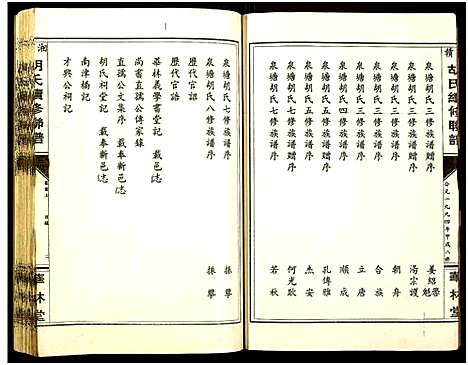 胡氏續修聯譜
公元一九九四年甲戌八修
華林堂
泉塘胡氏三修族譜序 姜紹魁
泉塘胡氏三修族譜贈序 湯宗護
泉塘胡氏三修族譜序 朝舟
泉塘胡氏三修族譜序 合族
泉塘胡氏四修族譜序 立唐
泉塘胡氏五修族譜序 順成
泉塘胡氏六修族譜序 杰安
泉塘胡氏六修族譜贈序 孔傳雅
泉塘胡氏七修族譜贈序 何光耿
泉塘胡氏七修族譜序 若秋
泉塘胡氏八修族譜序 振擎
歷代官諱 振擎
歷代官語
華林義學書堂記
尚書直孺公傳家錄
直孺公文集序
胡氏祠堂記 載奉新邑志
南津橋記 載奉新邑志
才興公祠記
胡氏續修聯譜
華林堂